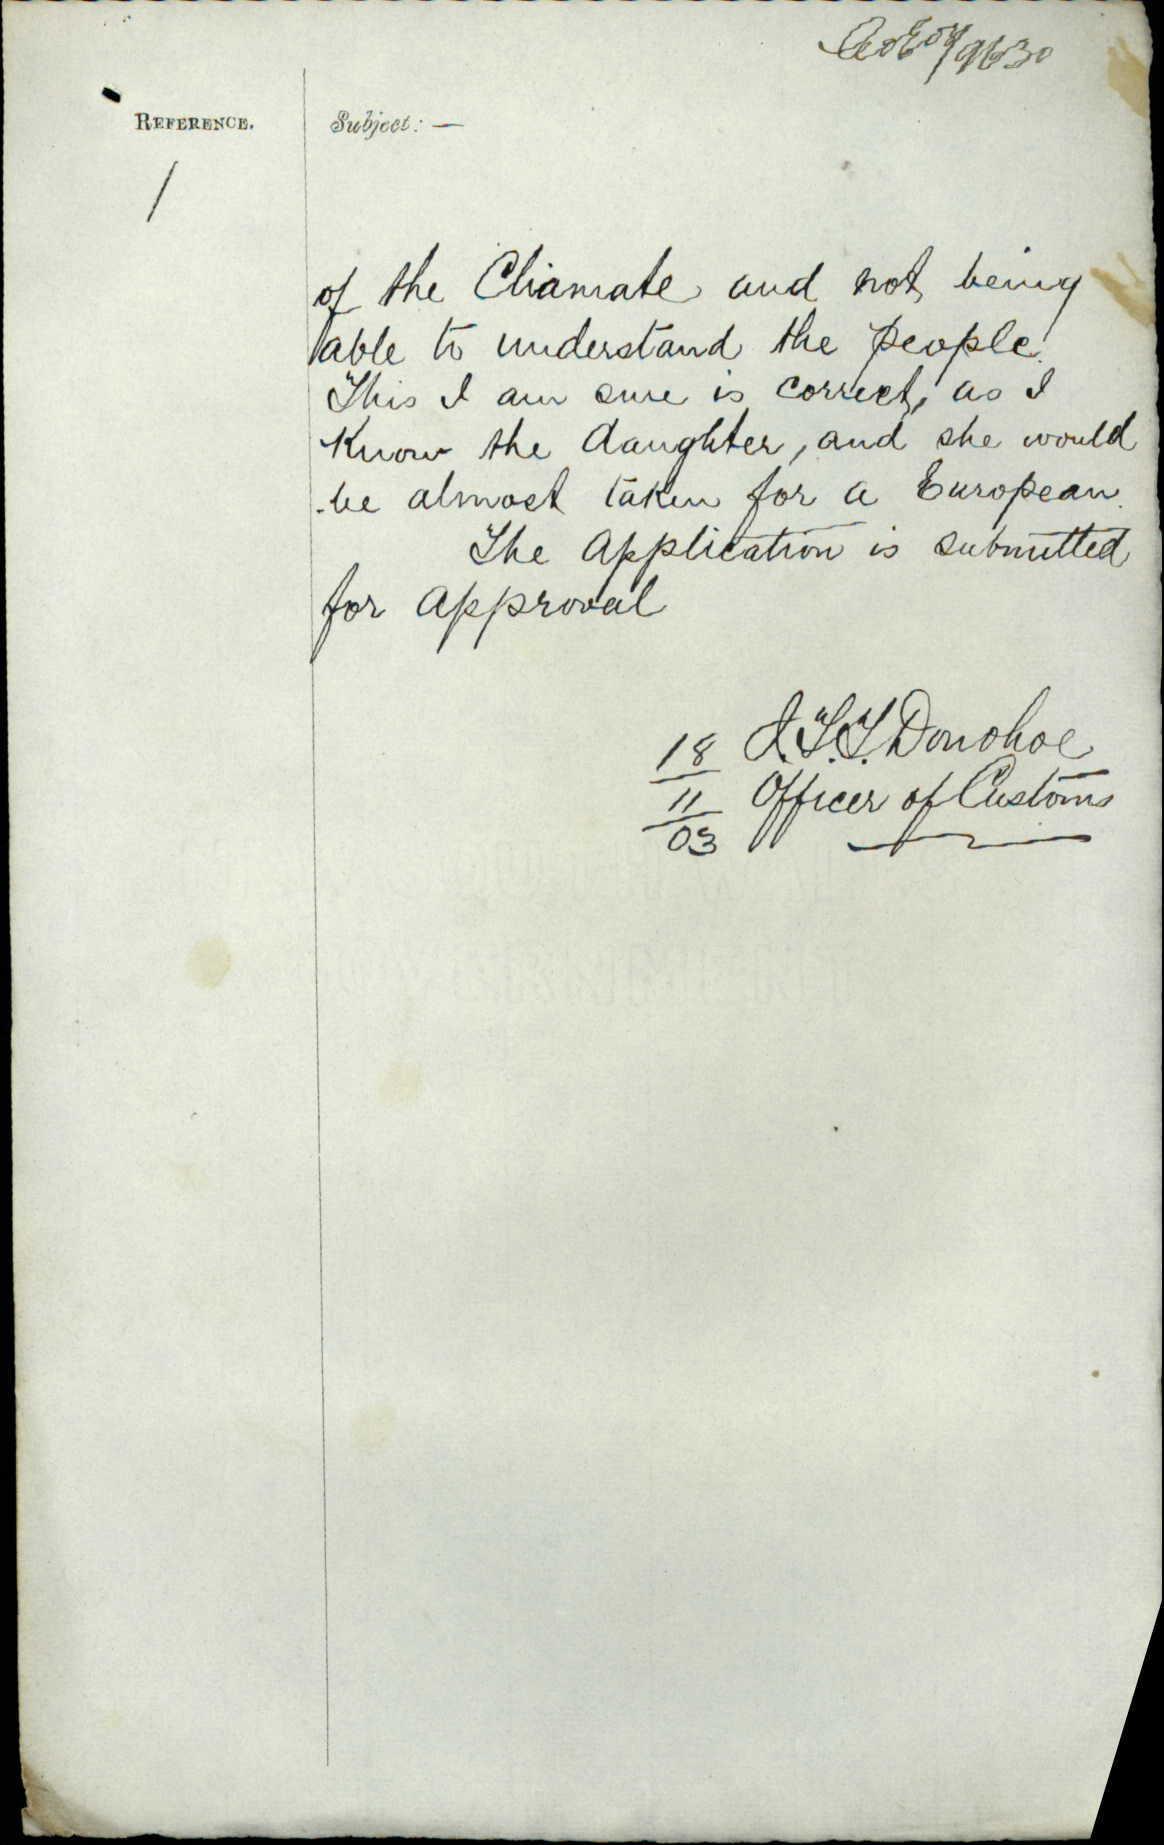 9630
REFERENCE.
Subject: —
/
of the Cliamate and not being
able to understand the people.
This I am sure is correct, as I
Know the daughter, and she would
be almost taken for a European.
The Application is submitted
for approval
18 J.T.T. Donohoe
11 Officer of Customs
03